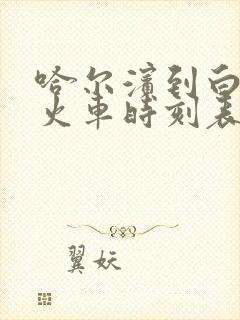 哈尔滨到白
火车时刻表
翼妖